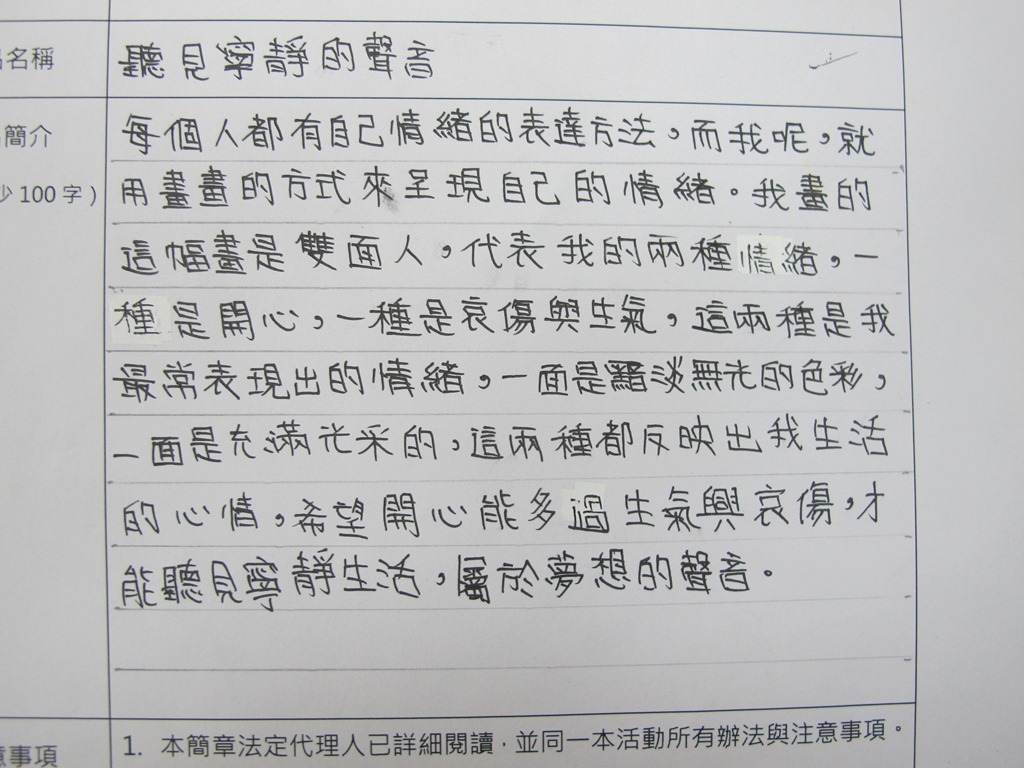 名稱
聽見寧靜的聲音
簡介
少100字)
每個人都有自己情緒的表達方法,而我呢,就
用畫畫的方式來呈現自己的情緒。我畫的
這幅畫是雙面人,代表我的兩種情緒,一
種是開心,一種是哀傷與生氣,這兩種是我
最常表現出的情緒,一面是黯淡無光的色彩,
一面是充滿光采的,這兩種都反映出我生活
的心情,希望開心能多過生氣與哀傷,才
能聽見寧靜生活,屬於夢想的聲音。
意事項
1. 本簡章法定代理人已詳細閱讀,並同一本活動所有辦法與注意事項。